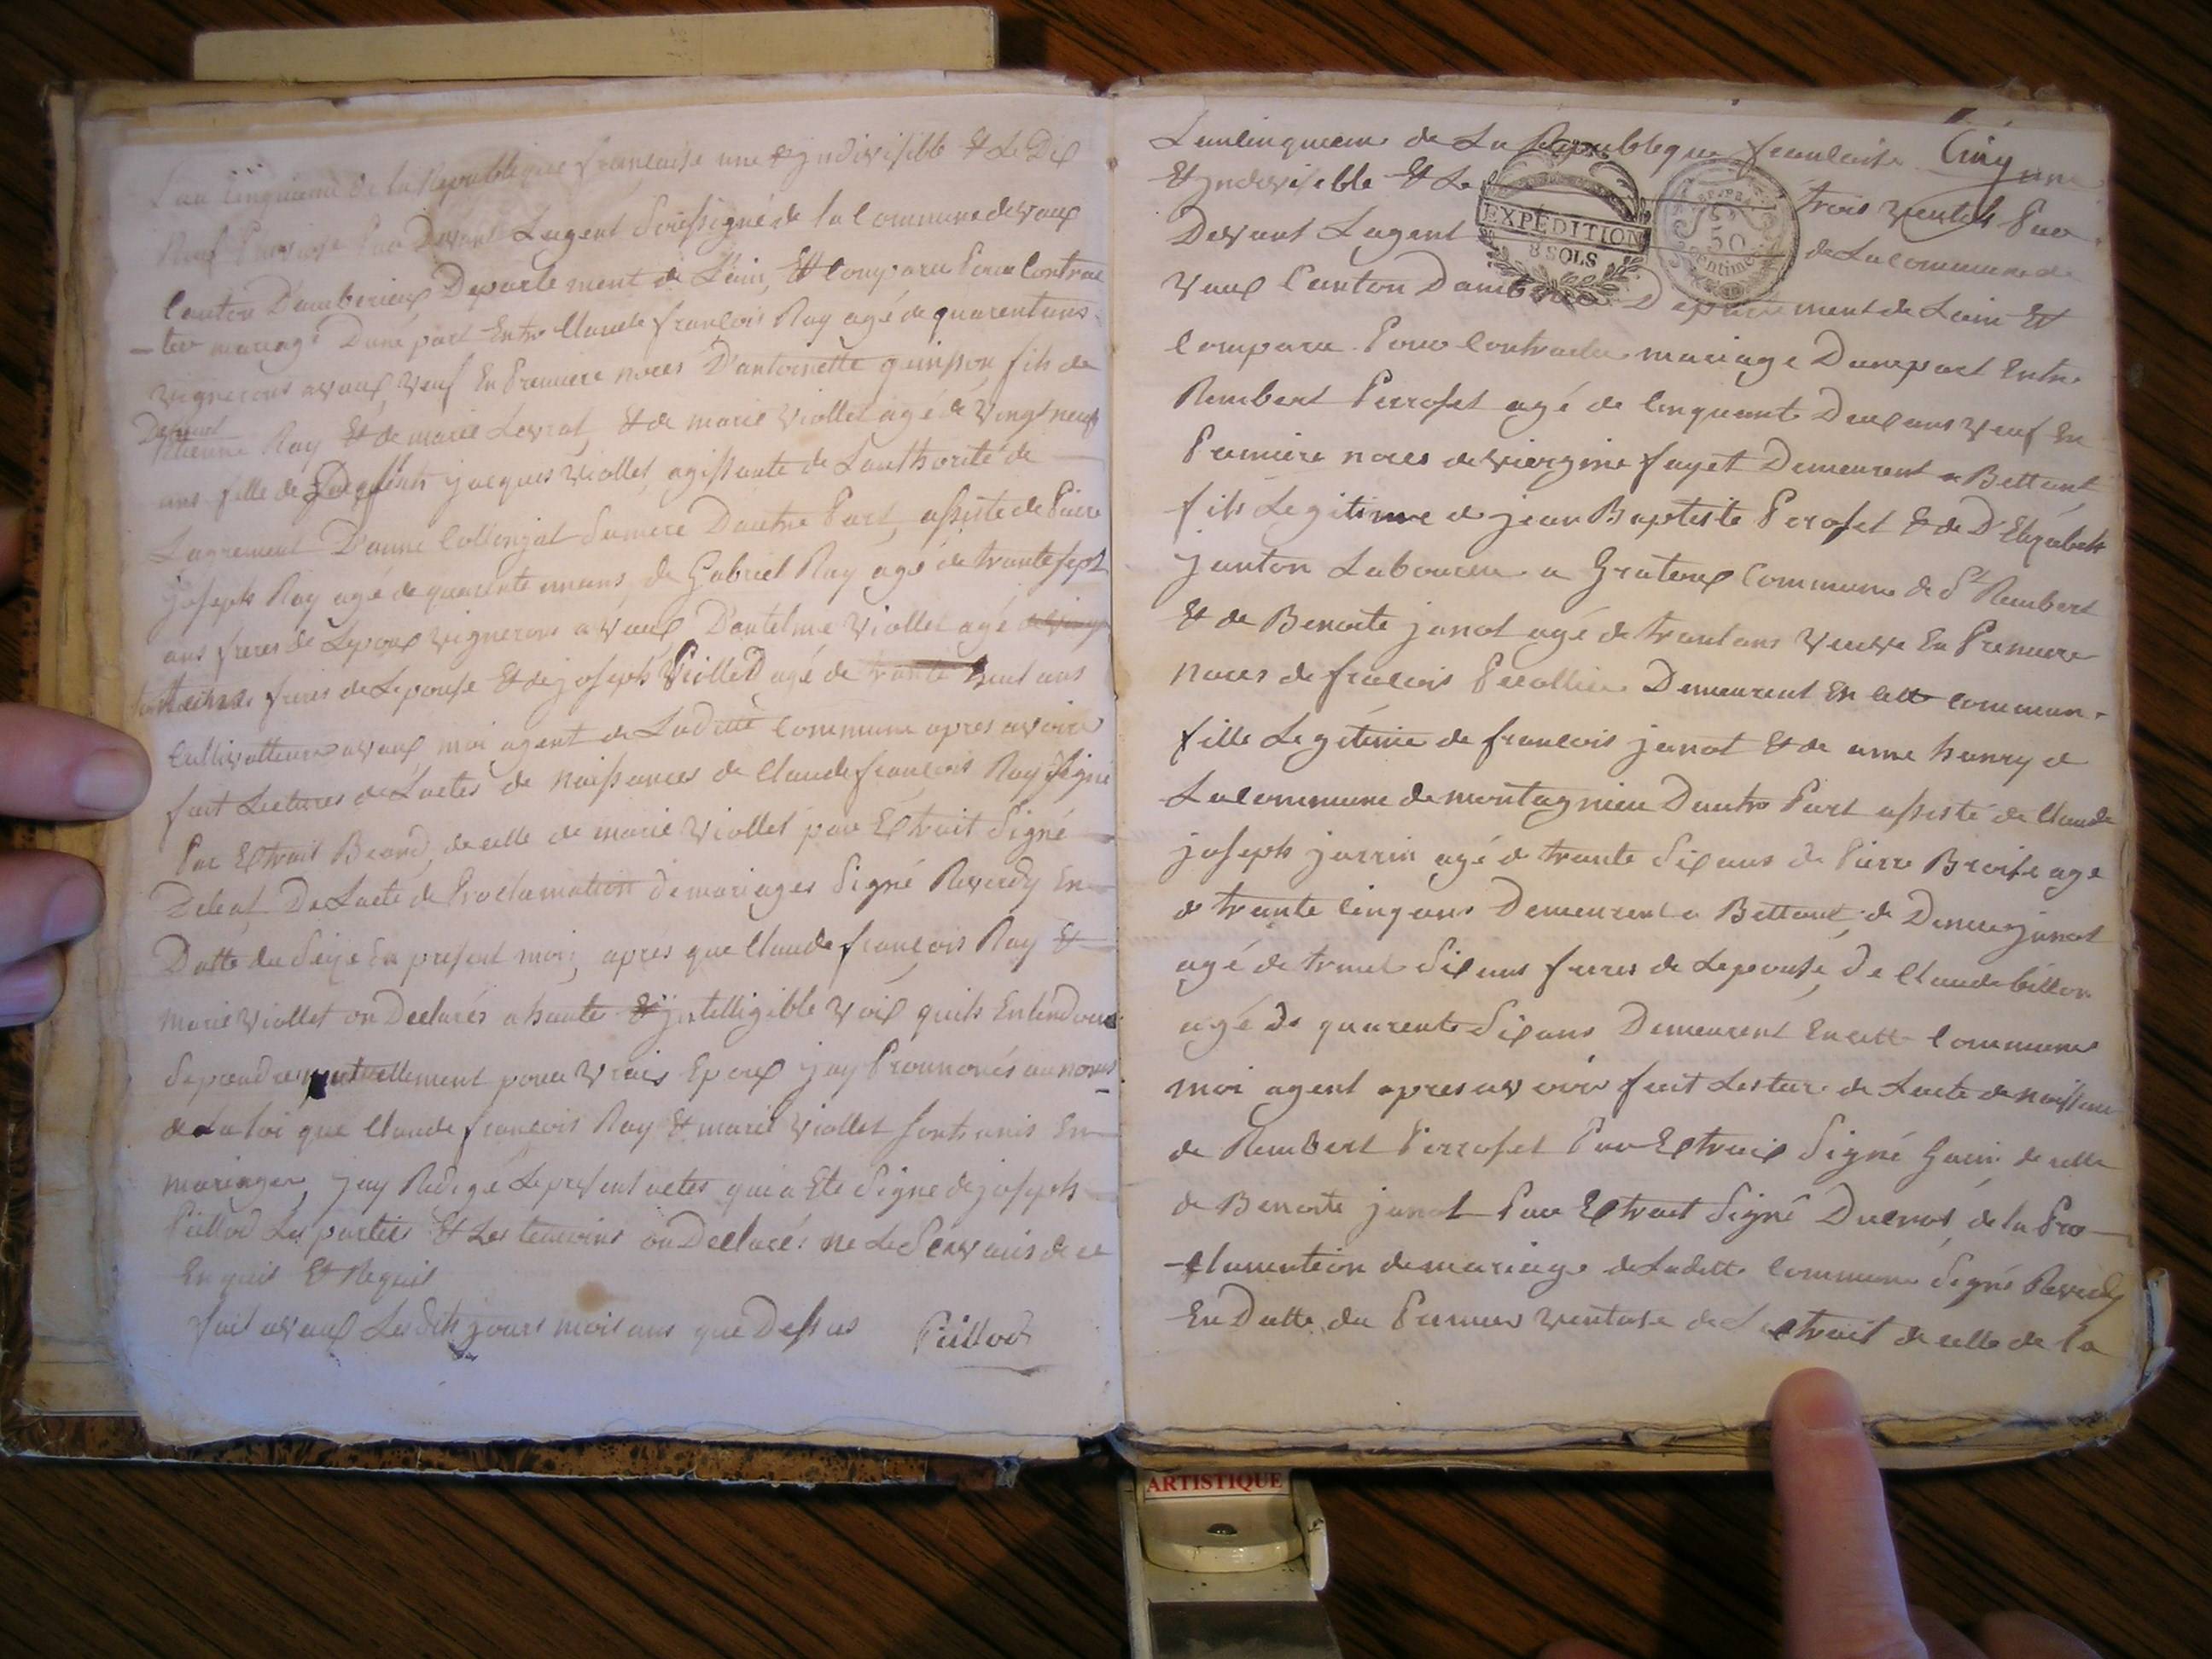 L'an Cinquieme de la Republique francaise une & yndivisible & Le Dix
Neuf Pluviose Par Devant Lagent Soussigné de la Commune de vaux
Canton D'amberieux Departement de L'ain, Et Comparu Pour Contrac
-ter mariage D'une part Entre Claude francois Ray agé de quarent ans
vignerons a vaux, veuf En Premiere noces D'antoinette quinson fils de
Defunt
Etienne Ray & de marie Levrat, & de marie Viollet agé de vingt neuf
ans fille de jacques Viollet, agissante de Lauthorité de
Lagrement D'anne Collonjat Sa mere D'autre Part, assisté de Pierre
joseph Ray agé de quarente un ans, de Gabriel Ray agé de trante sept
ans freres de Lepoux vignerons a vaux, D'antelme Viollet agé
freres de Lepouse & de joseph Peillod agé de trante huit ans
Cultivatteurs a vaux, moi agent de Laditte Commune apres avoire
fait Lectures de Lactes de naissances de Claude francois Ray Signé
Par Extrait Béard, de celle de marie Viollet par Extrait Signé
De Lacte de Proclamation de mariages Signé Reverdy En
Datte du Seize du present mois, apres que Claude francois Ray &
marie Viollet on Declarés a haute & yntelligible voix quils Entendoient
Se prendre mutuellement pour vrais Epoux jay Prononcés au noms
de La loi que Claude francois Ray & marie Viollet Sont unis En
mariages, jay Redigé Le present actes qui a Ete Signé de joseph
Peillod Les parties & Les temoins on Declaré ne Le Scavoir de ce
Enquis & Requis
fait a vaux Les dits jours mois ans que Dessus Peillod
Lan Cinquieme de La Republique francaise Cinq une
& yndivisible & Le trois ventos Par
EXPÉDITION
8 SOLS
50
Centimes
Devant Lagent de La Commune de
Vaux Canton Damberieux Departement de Lain Et
Comparu Pour Contracter mariage D'une part Entre
Rembert Perroset agé de Cinquante Deux ans veuf En
Premiere noces de vierginie fayet Demeurent a Bettant
fils Legitime de jean Baptiste Peroset & de D'Elizabeth
janton Laboureur a Grateux Commune de St Rambert
& de Benoite janot agé de trant ans veuve En Premiere
noces de francois Pecollier Demeurent En Cette Commun.
fille Legitime de francois janot & de anne henry de
La Commune de montagnieu Dautre Part assisté de Claude
joseph jarrin agé de trante Six ans de Pierre Broise agé
de trante Cinq ans Demeurent a Bettant, de Denis janot
agé de trant Six ans freres de Lepouse, de Claude billon
agé de quarente Six ans Demeurent En Cette Commune
moi agent apres avoir fait Lecture de Lacte de naissance
de Rembert Perroset Par Extrait Signé de celle
de Benoite janot Par Extrait Signé Ducrot, de la Pro
-clamation de mariage de Laditte Commune Signé Reverdy
En Datte du Premier ventose de Lextrait de celle de la
ARTISTIQUE